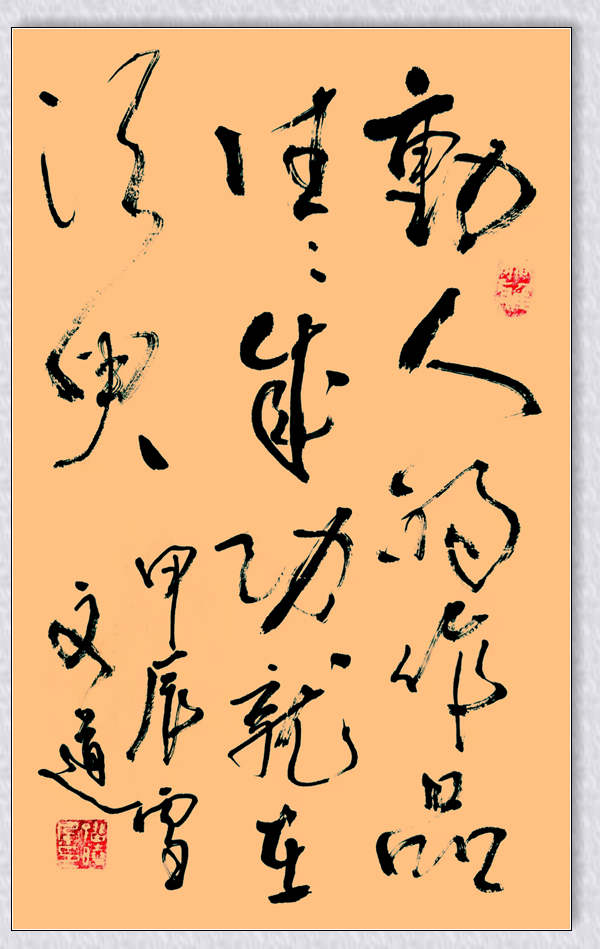 動人的作品
往往成功就在
須臾
甲辰雪
文道